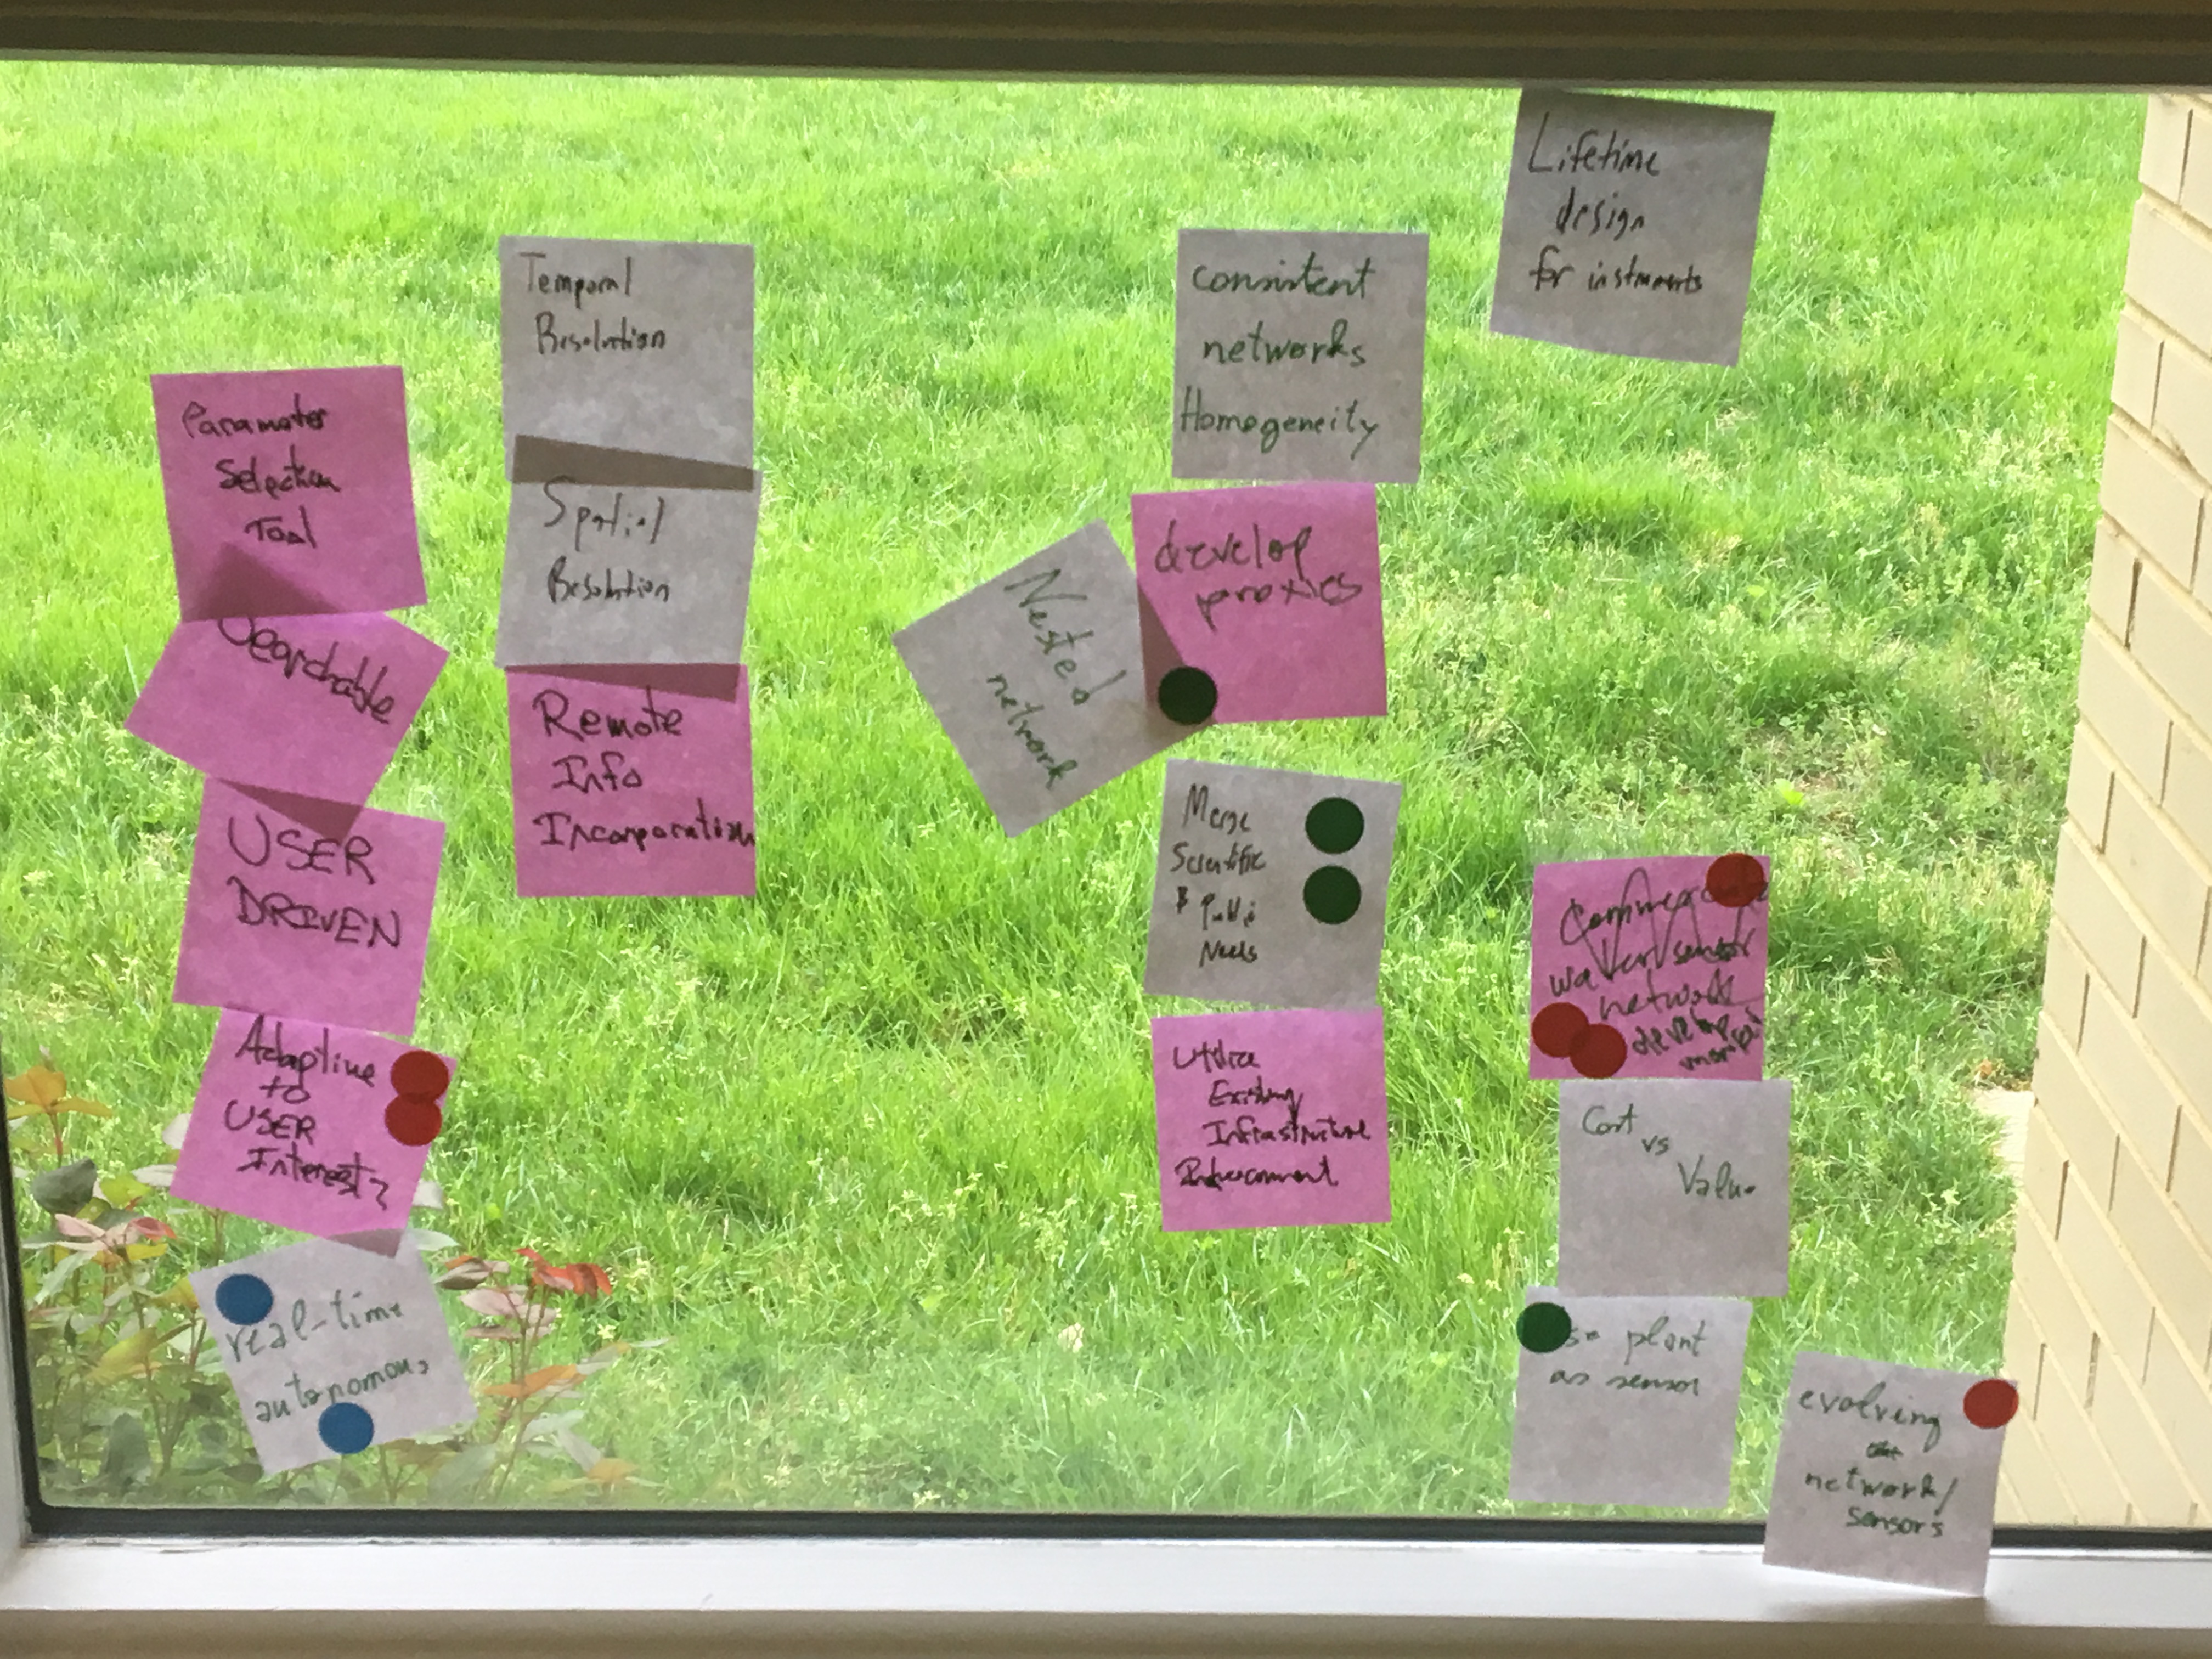 Parameter
Selection
Tool
Searchable
USER
DRIVEN
Adaptive
to
USER
Interest
real-time
autonomous
Temporal
Resolution
Spatial
Resolution
Remote
Info
Incorporation
Nested
network
consistent
networks
Homogeneity
develop
proxies
Merge
Scientific
& Public
Needs
Utilize
Existing
Infrastructure
Lifetime
design
for instments
water sensor
network
develop
Cost
vs
Value
plant
as sensor
evolving
network/
sensors